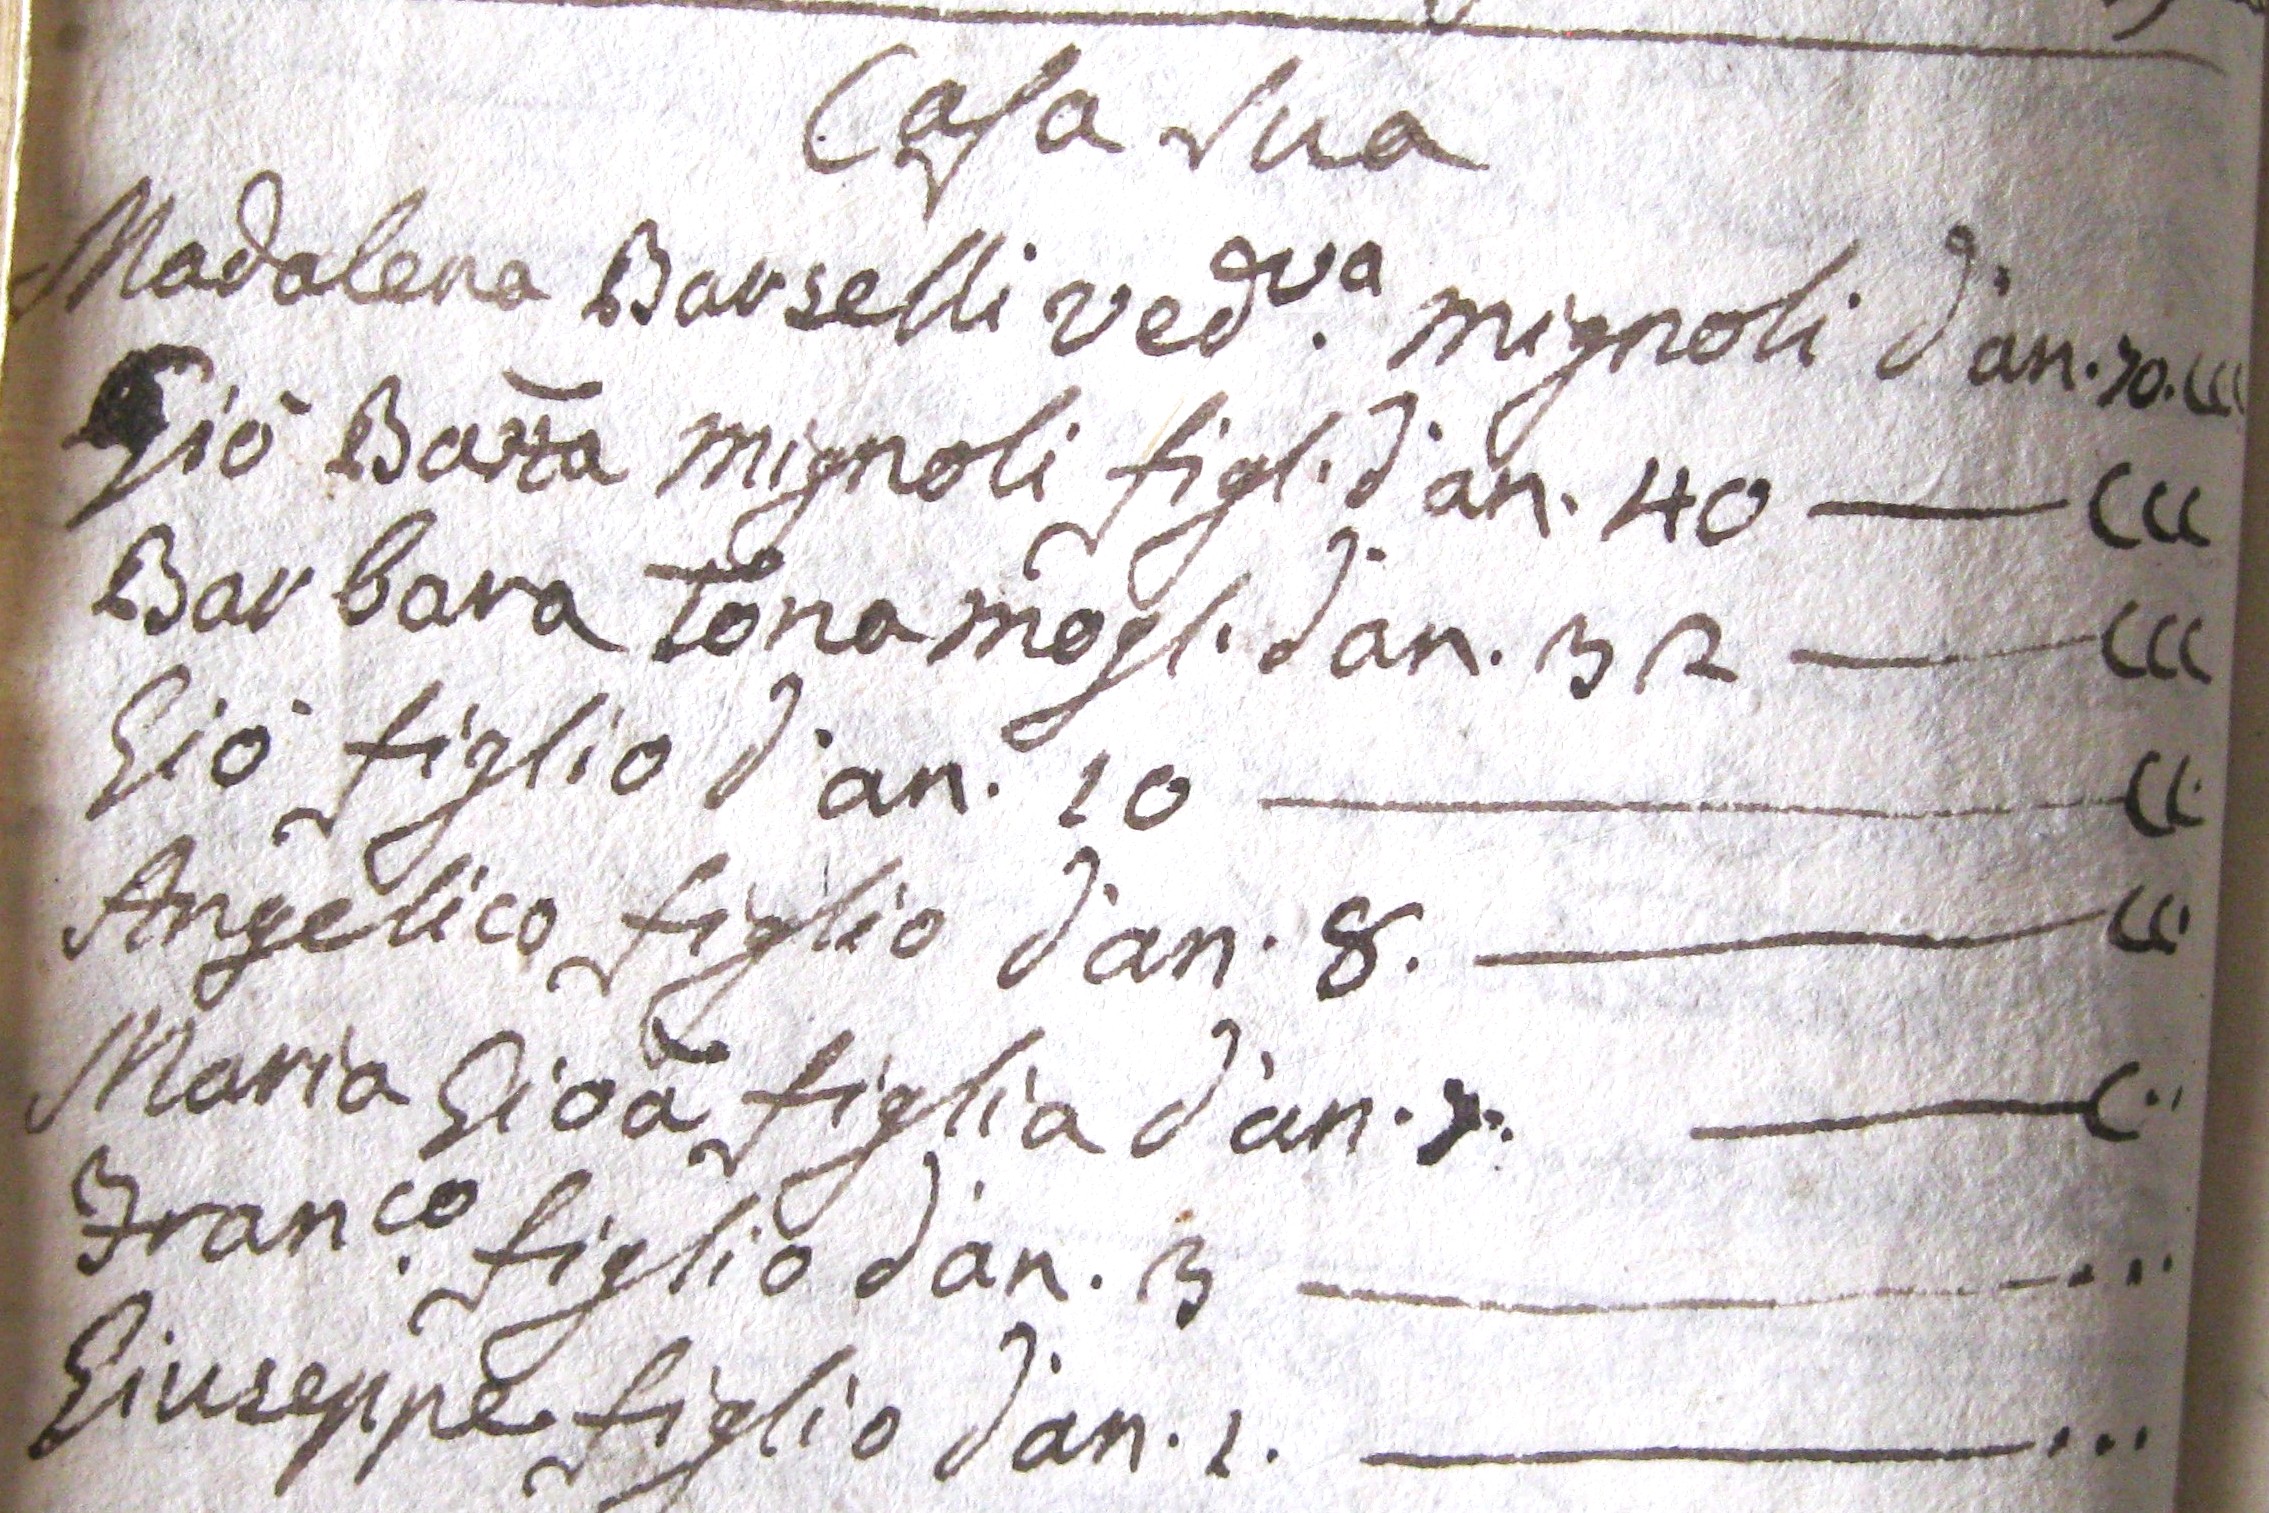 Casa sua
Madalena Barselli ved.va mignoli d'an. 70. CCC
Giò Batta mignoli figl. d'an. 40 — CCC
Barbara Tona mogl. d'an. 32 — CCC
Giò figlio d'an. 10 — CC·
Angelico figlio d'an. 8. — CC·
Maria Gioa figlia d'an. — C··
Fran.co figlio d'an. 3 — ···
Giuseppe figlio d'an. 1. — ···